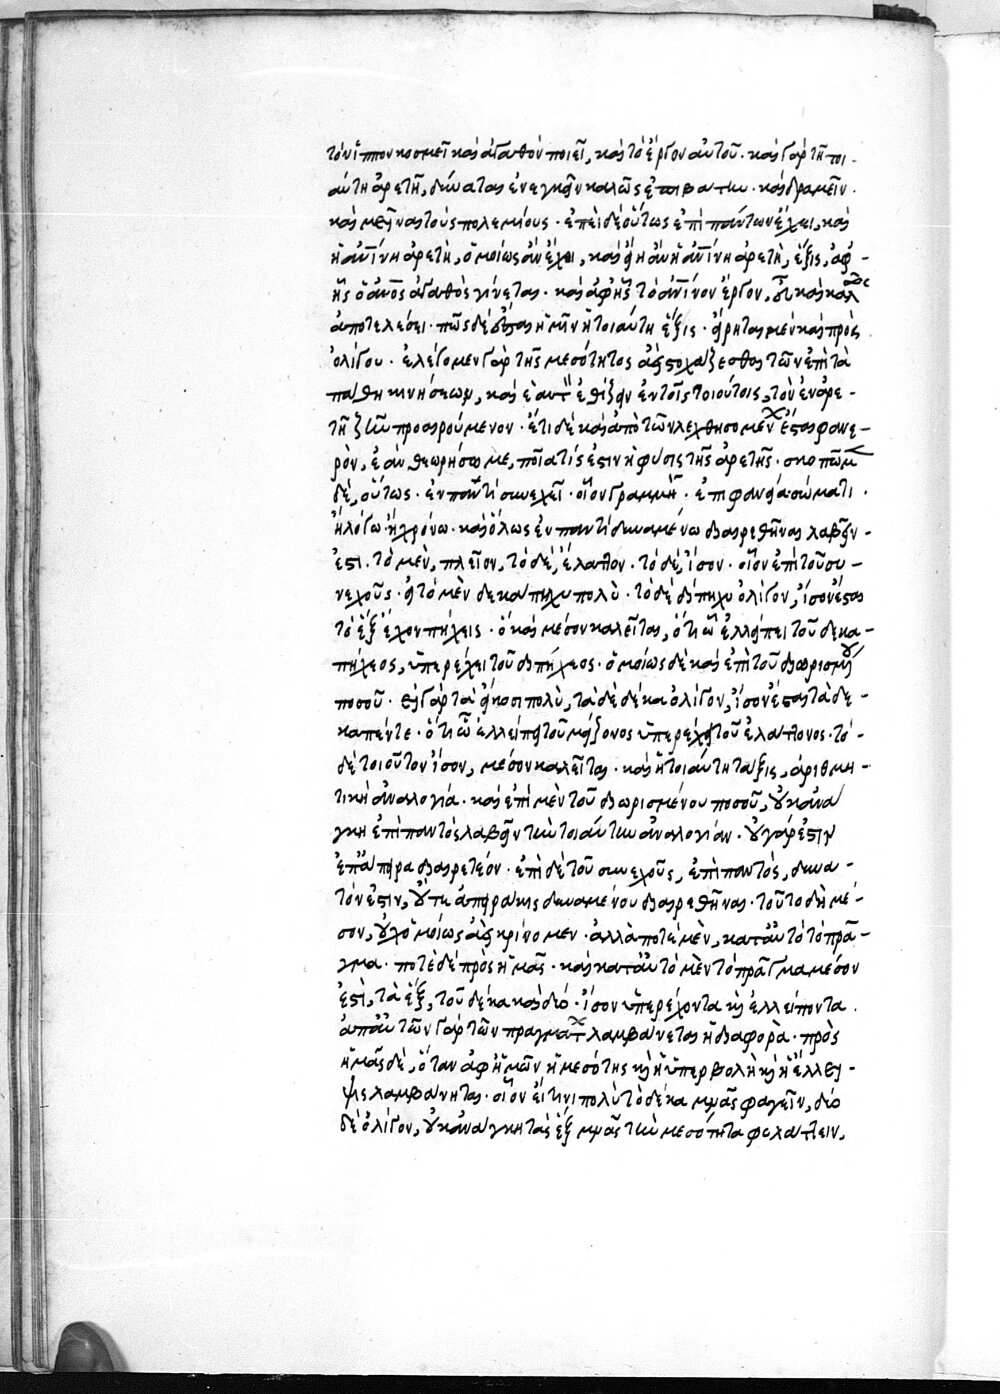 τὸν ἵππον κοσμεῖ καὶ ἀγαθὸν ποιεῖ, καὶ τὸ ἔργον αὐτοῦ· καὶ γὰρ τῇ τοι-
αύτῃ ἀρετῇ, δύναται ἐνεγκεῖν καλῶς ἐπιβάτην· καὶ δραμεῖν·
καὶ μεῖναι τοὺς πολεμίους· ἐπεὶ δὲ οὕτως ἐπὶ πάντων ἔχει, καὶ
ἡ ἀνίνη ἀρετὴ, ὁμοίως ἂν ἔχοι, καὶ εἴη ἂν ἡ ἀνίνη ἀρετὴ, ἕξις, ἀφ-
ἧς ὁ ἄνος ἀγαθὸς γίνεται· καὶ ἀφ ἧς τὸ ἀνίνον ἔργον, εὖ καὶ καλῶς
ἀποτελέσει· πῶς δὲ ἔσται ἡμῖν ἡ τοιαύτη ἕξις· εἴρηται μὲν καὶ πρὸ
ὀλίγου· ἐλέγομεν γὰρ τῆς μεσότητος δεῖ στοχάζεσθαι τῶν ἐπὶ τὰ
πάθη κινήσεων, καὶ ἑαυτὸν ἐθίζειν ἐν τοῖς τοιούτοις, τὸν ἐν ἀρε-
τῇ ζῆν προαιρούμενον· ἔτι δὲ καὶ ἀπὸ τῶν λεχθησομένων ἔσται φανε-
ρὸν, ἐὰν θεωρήσωμεν, ποία τίς ἐστιν ἡ φύσις τῆς ἀρετῆς· σκοπῶμεν
δὲ, οὕτως· ἐν παντὶ συνεχεῖ· οἷον γραμμῇ· ἐπιφανείᾳ σώματι·
ἢ λόγω ἢ χρόνω· καὶ ὅλως ἐν παντὶ δυναμένω διαιρεθῆναι λαβεῖν
ἔστι. τὸ μὲν, πλεῖον, τὸ δὲ, ἔλαττον· τὸ δὲ, ἴσον· οἷον ἐπὶ τοῦ συ-
νεχοῦς· εἰ τὸ μὲν δεκάπηχυ πολὺ· τὸ δὲ δίπηχυ ὀλίγον, ἴσον ἔσται
τὸ ἓξ ἔχον πήχεις· ὃ καὶ μέσον καλεῖται, ὅτι ᾧ ἐλλείπει τοῦ δεκα-
πήχεος, ὑπερέχει τοῦ διπήχεος· ὁμοίως δὲ καὶ ἐπὶ τοῦ διωρισμένου
ποσοῦ· εἰ γὰρ τὰ εἴκοσι πολὺ, τὰ δὲ δέκα ὀλίγον, ἴσον ἔσται τὰ δε-
καπέντε· ὅτι ᾧ ἐλλείπει τοῦ μείζονος ὑπερέχει τοῦ ἐλάττονος· τὸ-
δὲ τοιοῦτον ἴσον, μέσον καλεῖται· καὶ ἡ τοιαύτη τάξις, ἀριθμη-
τικὴ ἀναλογία· καὶ ἐπὶ μὲν τοῦ διωρισμένου ποσοῦ, οὐκ ἀνά
γκη ἐπὶ παντὸς λαβεῖν τὴν τοιαύτην ἀναλογίαν· οὐ γάρ ἐστιν
ἐπ ἄπειρα διαιρετέον· ἐπὶ δὲ τοῦ συνεχοῦς, ἐπὶ παντὸς, δυνα-
τόν ἐστιν, ἅτε ἀπειράκις δυναμένου διαιρεθῆναι· τοῦτο δὴ μέ-
σον, οὐχ ὁμοίως ἀεὶ κρίνομεν· ἀλλὰ ποτὲ μὲν, κατ αὐτὸ τὸ πρᾶ-
γμα· ποτὲ δὲ πρὸς ἡμᾶς· καὶ κατ αὐτὸ μὲν τὸ πρᾶγμα μέσον
ἐστὶ, τὰ ἓξ, τοῦ δέκα καὶ δύο· ἴσον ὑπερέχοντα καὶ ἐλλείποντα·
ἀπ αὐτῶν γὰρ τῶν πραγμάτων λαμβάνεται ἡ διαφορὰ· πρὸς
ἡμᾶς δὲ, ὅταν ἀφ ἡμῶν ἡ μεσότης καὶ ἡ ὑπερβολὴ καὶ ἡ ἔλλει-
ψις λαμβάνηται· οἷον εἴ τινι πολὺ τὸ δέκα μνᾶς φαγεῖν, δύο
δὲ ὀλίγον, οὐκ ἀνάγκη τὰς ἓξ μνᾶς τὴν μεσότητα φυλάττειν,